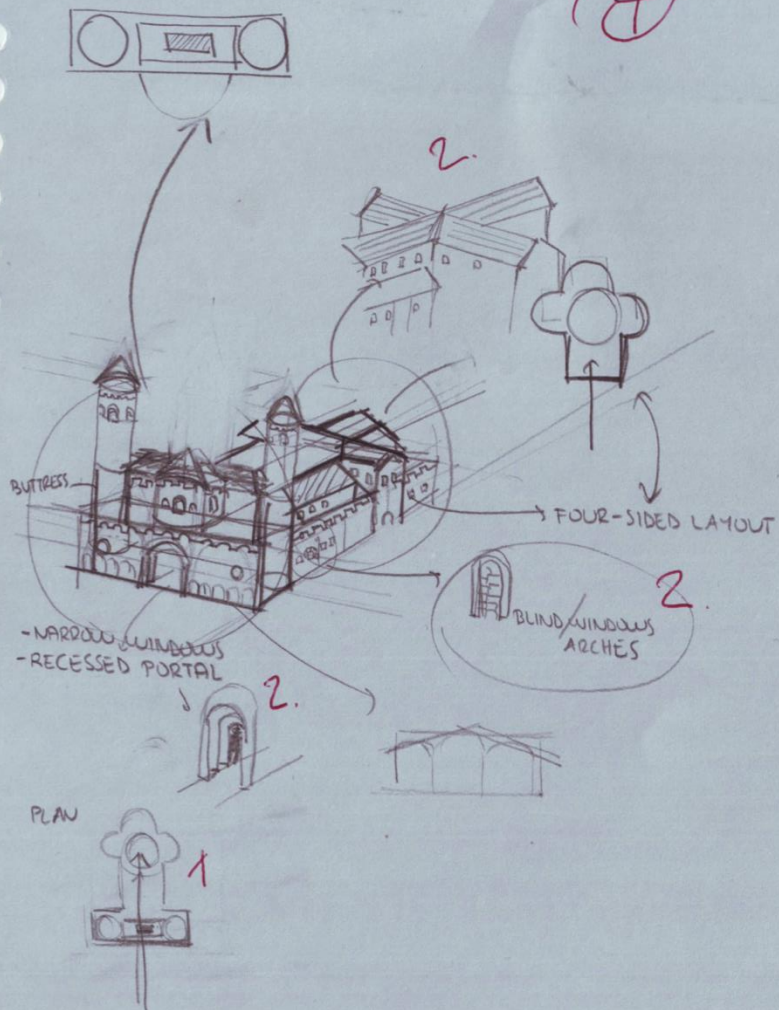 2.
BUTTRESS
FOUR-SIDED LAYOUT
2.
BLIND/WINDOWS
ARCHES
-NARROW WINDOWS
-RECESSED PORTAL
2.
PLAN
1